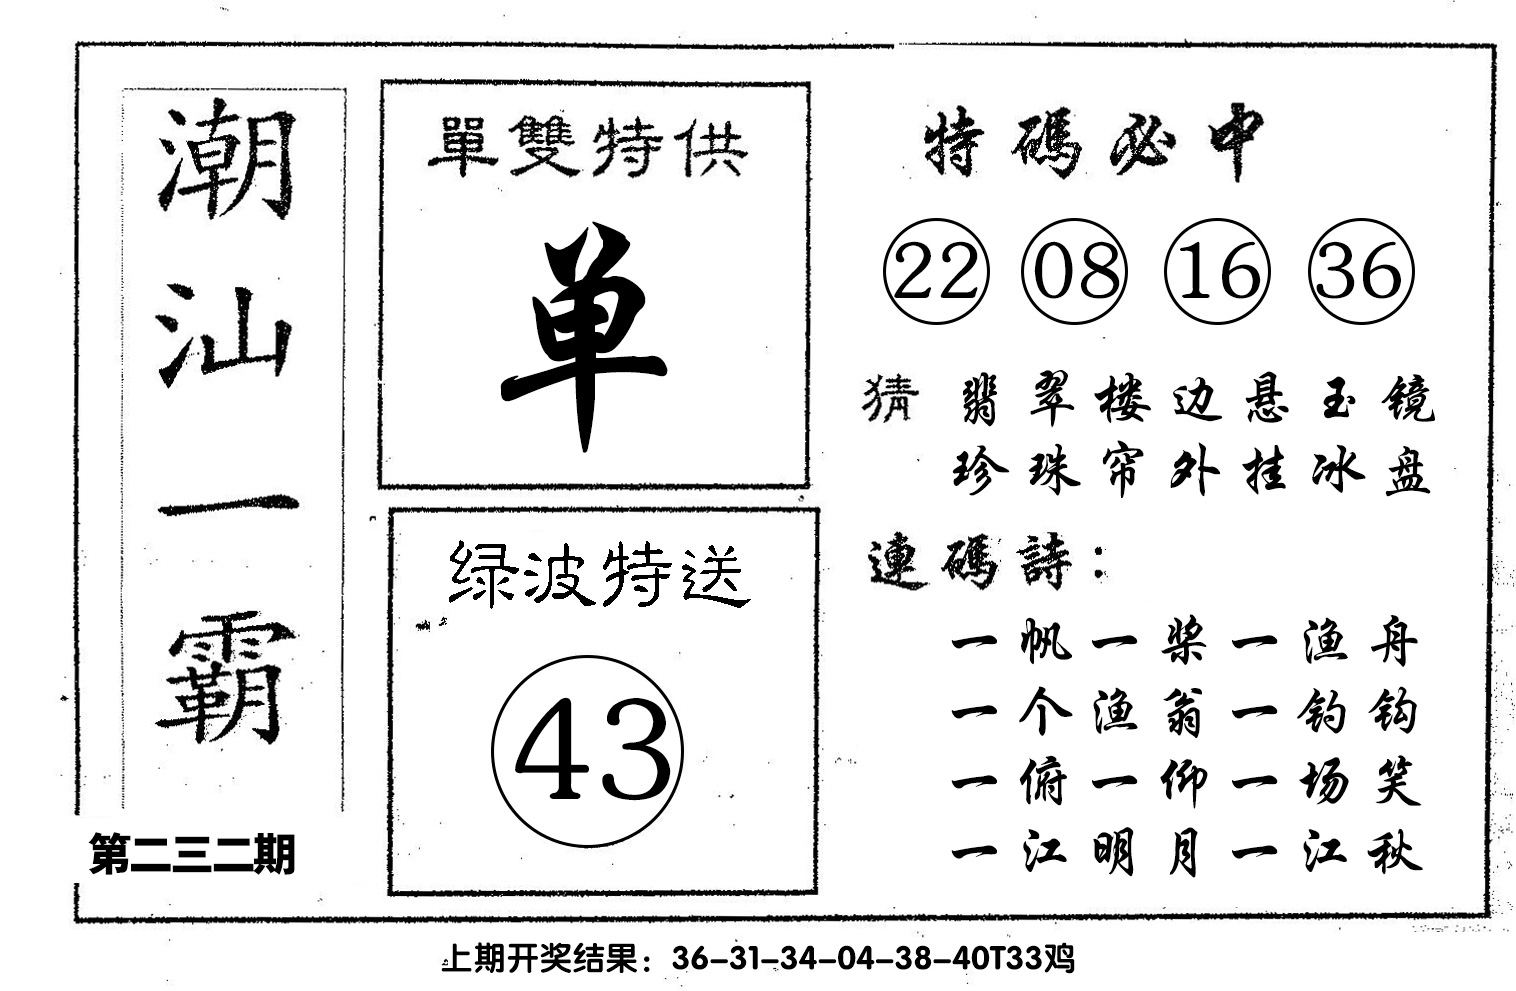 潮汕一霸
第二三二期
單雙特供
单
绿波特送
43
特碼必中
22 08 16 36
猜 翡翠楼边悬玉镜
珍珠帘外挂冰盘
連碼詩：
一帆一桨一渔舟
一个渔翁一钓钩
一俯一仰一场笑
一江明月一江秋
上期开奖结果：36-31-34-04-38-40T33鸡